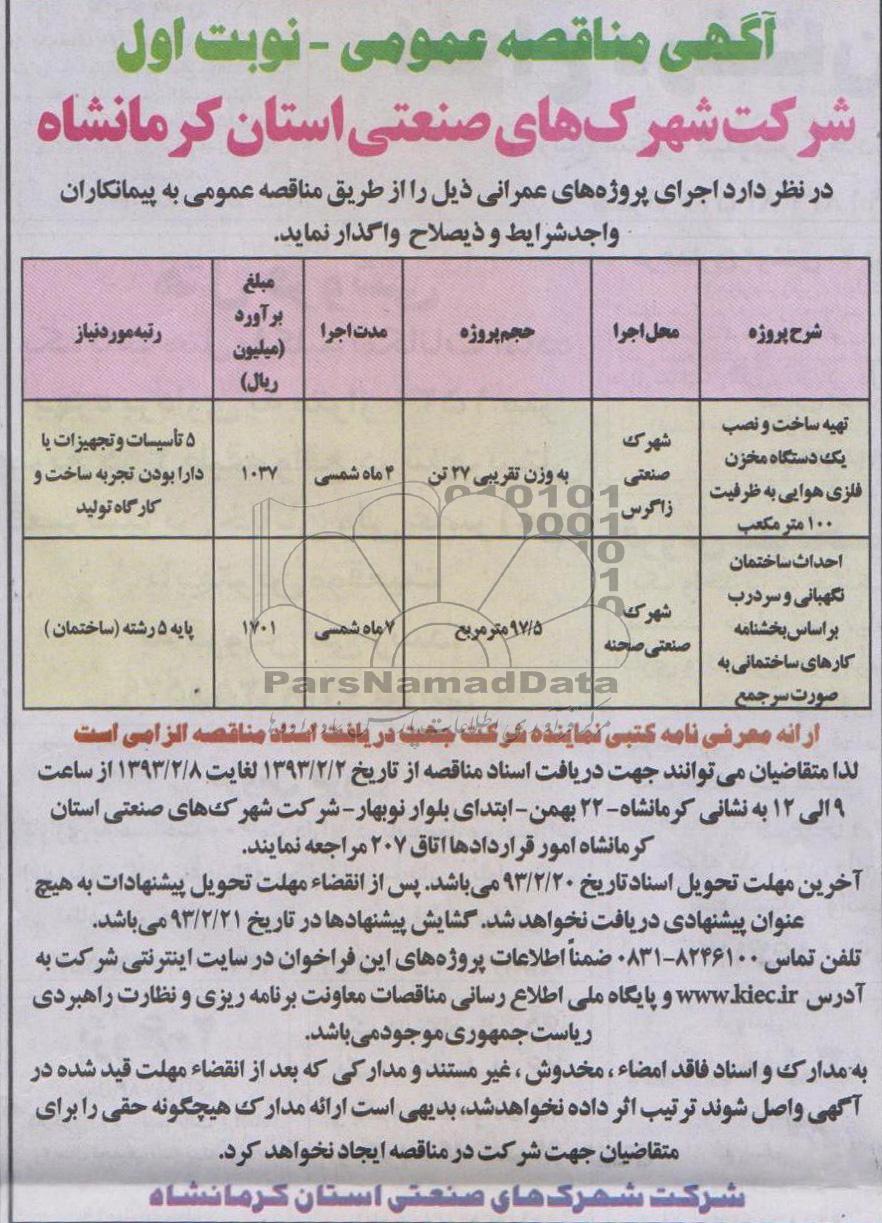 آگهی مناقصه عمومی - نوبت اول
شرکت شهرک‌های صنعتی استان کرمانشاه
در نظر دارد اجرای پروژه‌های عمرانی ذیل را از طریق مناقصه عمومی به پیمانکاران
واجدشرایط و ذیصلاح واگذار نماید.
شرح پروژه
محل اجرا
حجم پروژه
مدت اجرا
مبلغ
برآورد
(میلیون
ریال)
رتبه موردنیاز
تهیه ساخت و نصب
یک دستگاه مخزن
فلزی هوایی به ظرفیت
۱۰۰ متر مکعب
شهرک
صنعتی
زاگرس
به وزن تقریبی ۲۷ تن
۴ ماه شمسی
۱۰۳۷
۵ تأسیسات و تجهیزات یا
دارا بودن تجربه ساخت و
کارگاه تولید
احداث ساختمان
نگهبانی و سردرب
براساس بخشنامه
کارهای ساختمانی به
صورت سرجمع
شهرک
صنعتی صحنه
۹۷/۵ مترمربع
۷ ماه شمسی
۱۷۰۱
پایه ۵ رشته (ساختمان)
ParsNamadData
ارائه معرفی نامه کتبی نماینده شرکت جهت دریافت اسناد مناقصه الزامی است
لذا متقاضیان می‌توانند جهت دریافت اسناد مناقصه از تاریخ ۱۳۹۳/۲/۲ لغایت ۱۳۹۳/۲/۸ از ساعت
۹ الی ۱۲ به نشانی کرمانشاه - ۲۲ بهمن - ابتدای بلوار نوبهار - شرکت شهرک‌های صنعتی استان
کرمانشاه امور قراردادها اتاق ۲۰۷ مراجعه نمایند.
آخرین مهلت تحویل اسناد تاریخ ۹۳/۲/۲۰ می‌باشد. پس از انقضاء مهلت تحویل پیشنهادات به هیچ
عنوان پیشنهادی دریافت نخواهد شد. گشایش پیشنهادها در تاریخ ۹۳/۲/۲۱ می‌باشد.
تلفن تماس ۸۲۴۶۱۰۰-۰۸۳۱ ضمناً اطلاعات پروژه‌های این فراخوان در سایت اینترنتی شرکت به
آدرس www.kiec.ir و پایگاه ملی اطلاع رسانی مناقصات معاونت برنامه ریزی و نظارت راهبردی
ریاست جمهوری موجود می‌باشد.
به مدارک و اسناد فاقد امضاء ، مخدوش ، غیر مستند و مدارکی که بعد از انقضاء مهلت قید شده در
آگهی واصل شوند ترتیب اثر داده نخواهدشد، بدیهی است ارائه مدارک هیچگونه حقی را برای
متقاضیان جهت شرکت در مناقصه ایجاد نخواهد کرد.
شرکت شهرک‌های صنعتی استان کرمانشاه